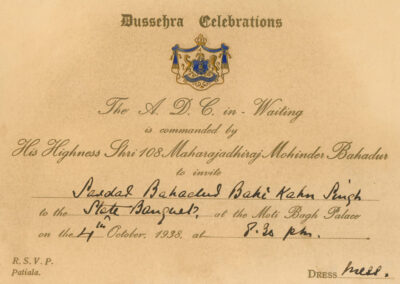 Dussehra Celebrations
The A. D. C. in - Waiting
is commanded by
His Highness Shri 108 Maharajadhiraj Mohinder Bahadur
to invite
Sardar Bahadur Kahn Singh
to the State Banquet, at the Moti Bagh Palace
on the 4th October, 1938, at 8.30 pm.
R. S. V. P.
Patiala.
DRESS Mess.